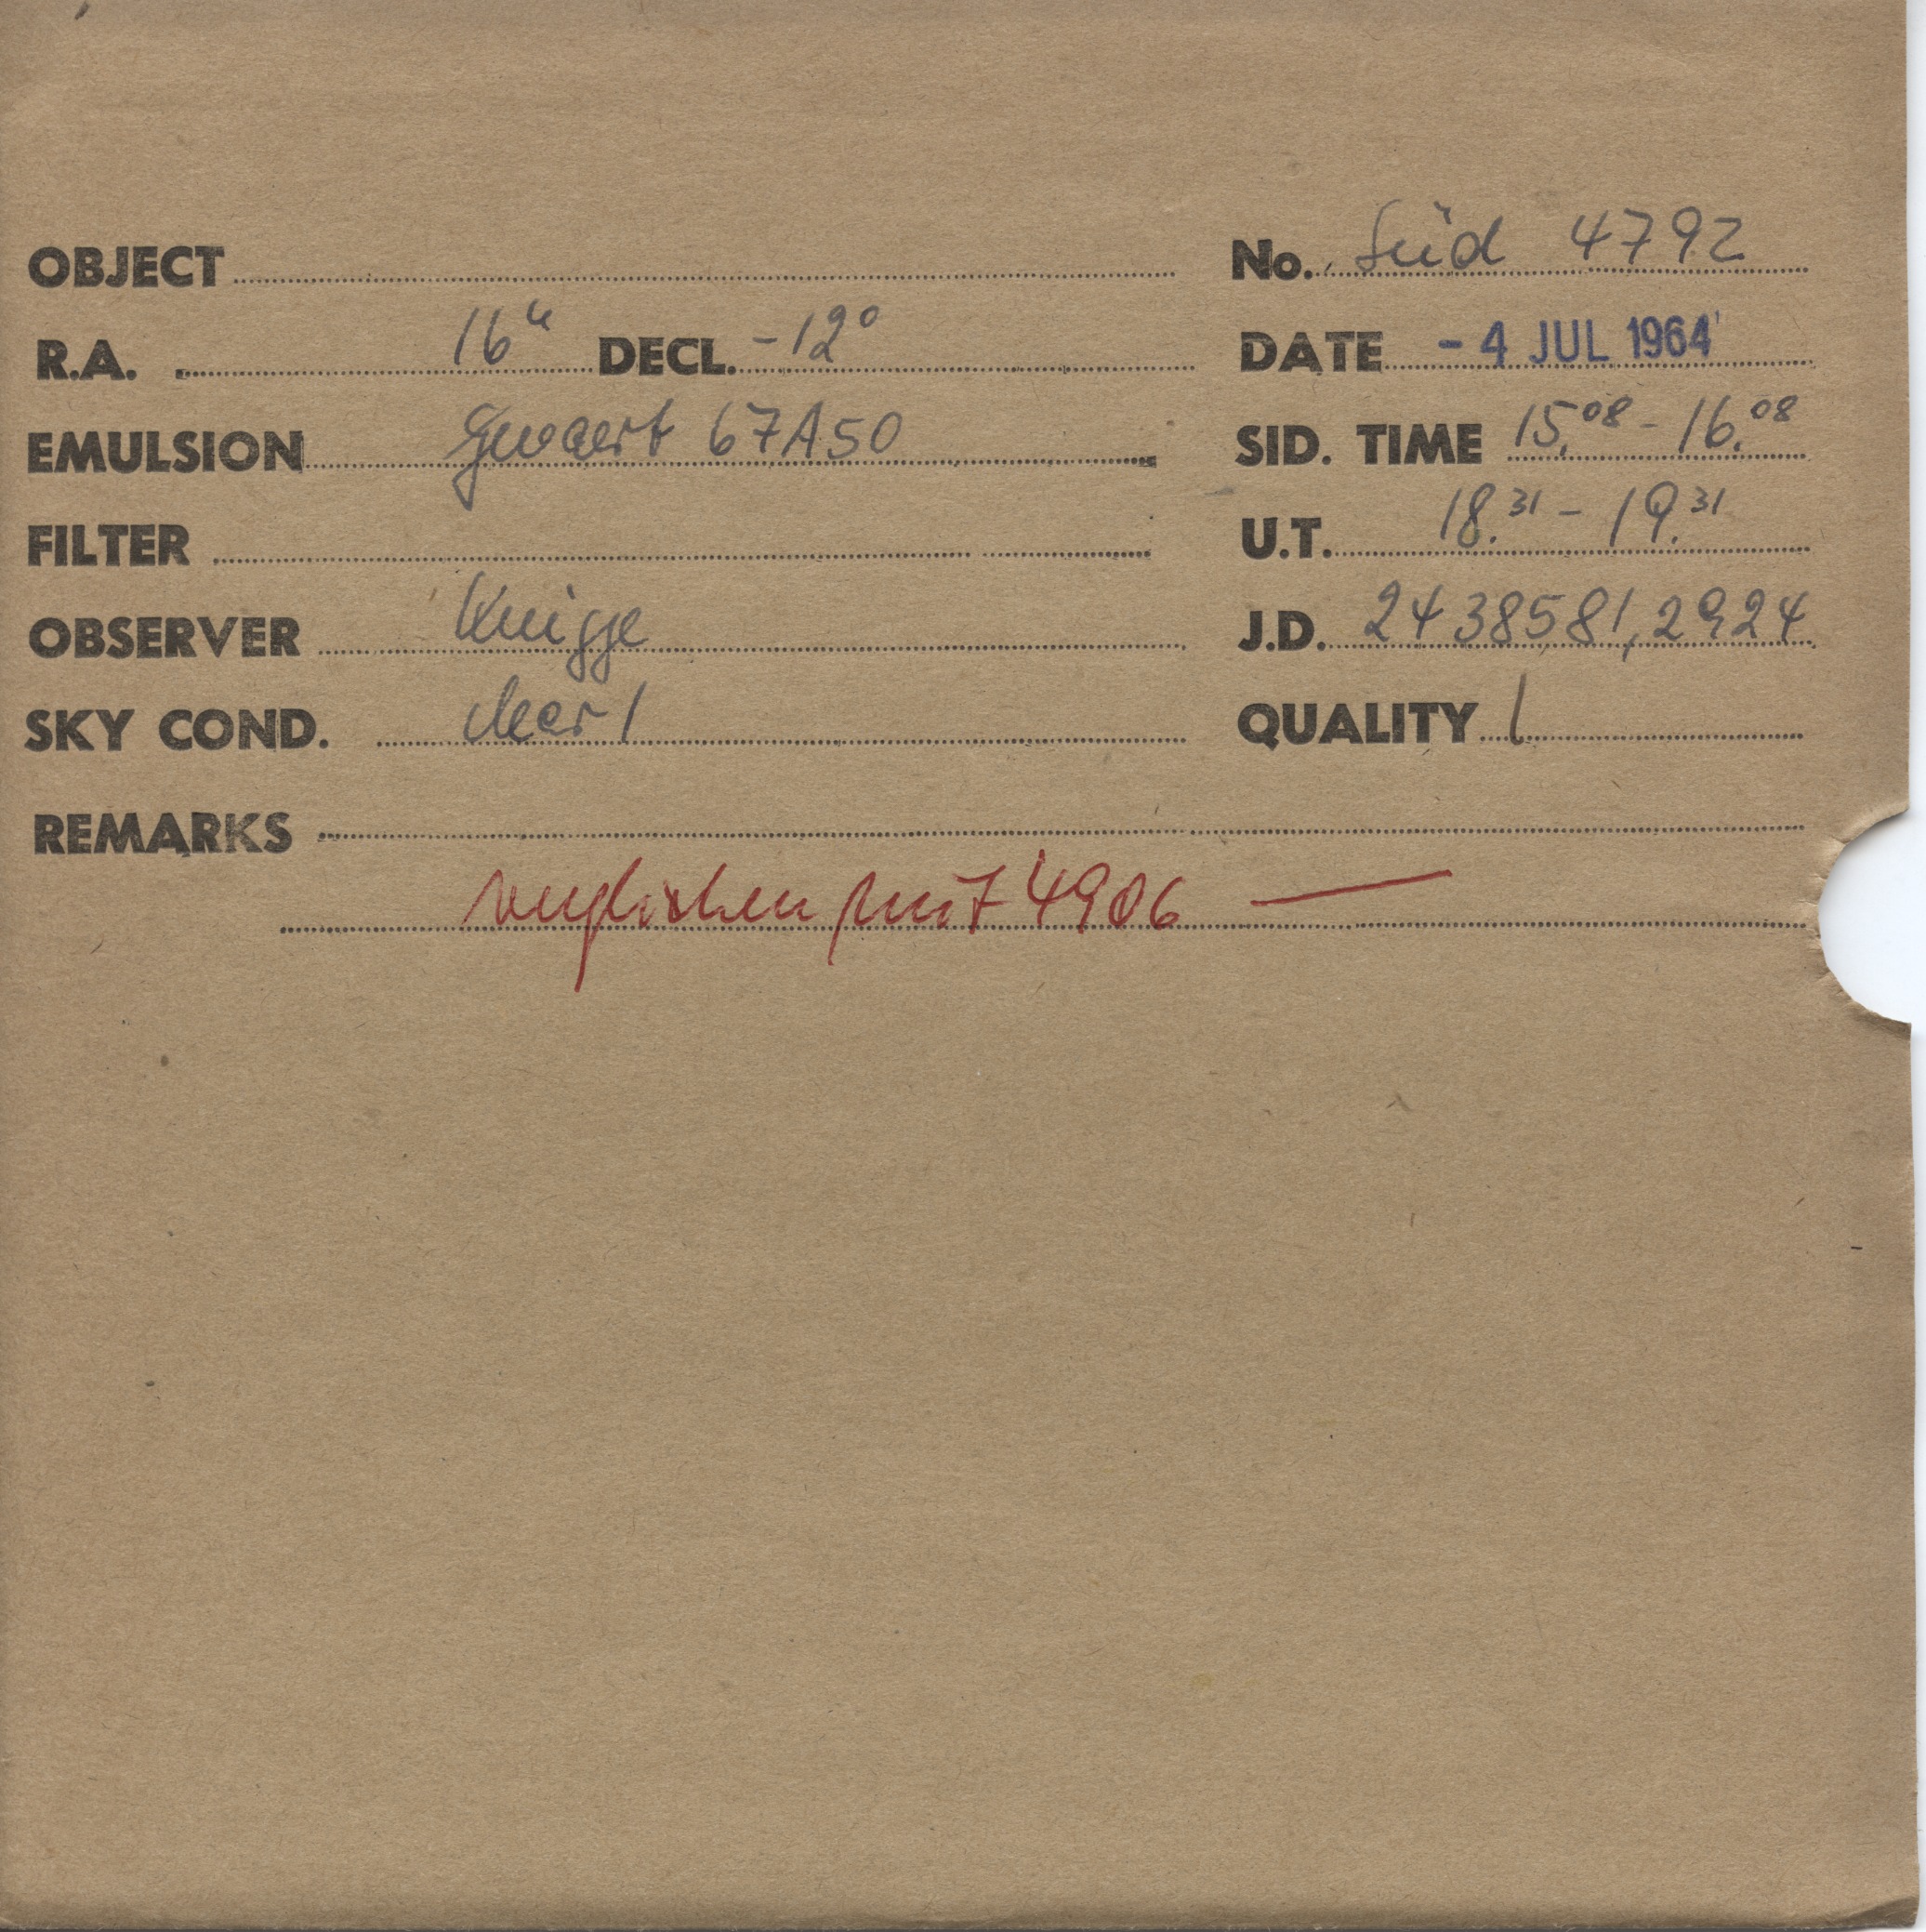 OBJECT No. Süd 4792
R.A. 16h DECL. -12° DATE - 4 JUL 1964
EMULSION Gevaert 67A50 SID. TIME 15.08 - 16.08
FILTER U.T. 18.31 - 19.31
OBSERVER Knigge J.D. 2438581,2924
SKY COND. clear 1 QUALITY 1
REMARKS
verglichen mit 4906 —